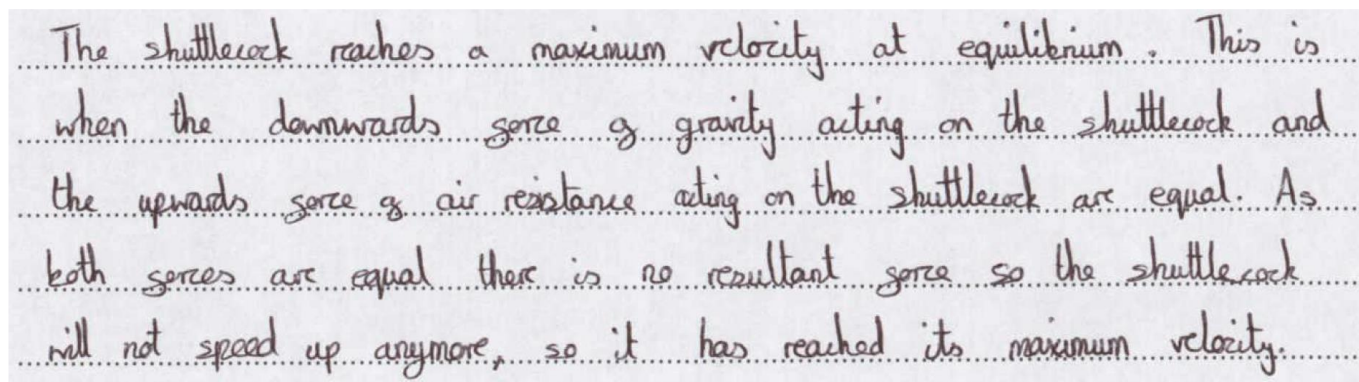 The shuttlecock reaches a maximum velocity at equilibrium. This is
when the downwards force of gravity acting on the shuttlecock and
the upwards force of air resistance acting on the shuttlecock are equal. As
both forces are equal there is no resultant force so the shuttlecock
will not speed up anymore, so it has reached its maximum velocity.